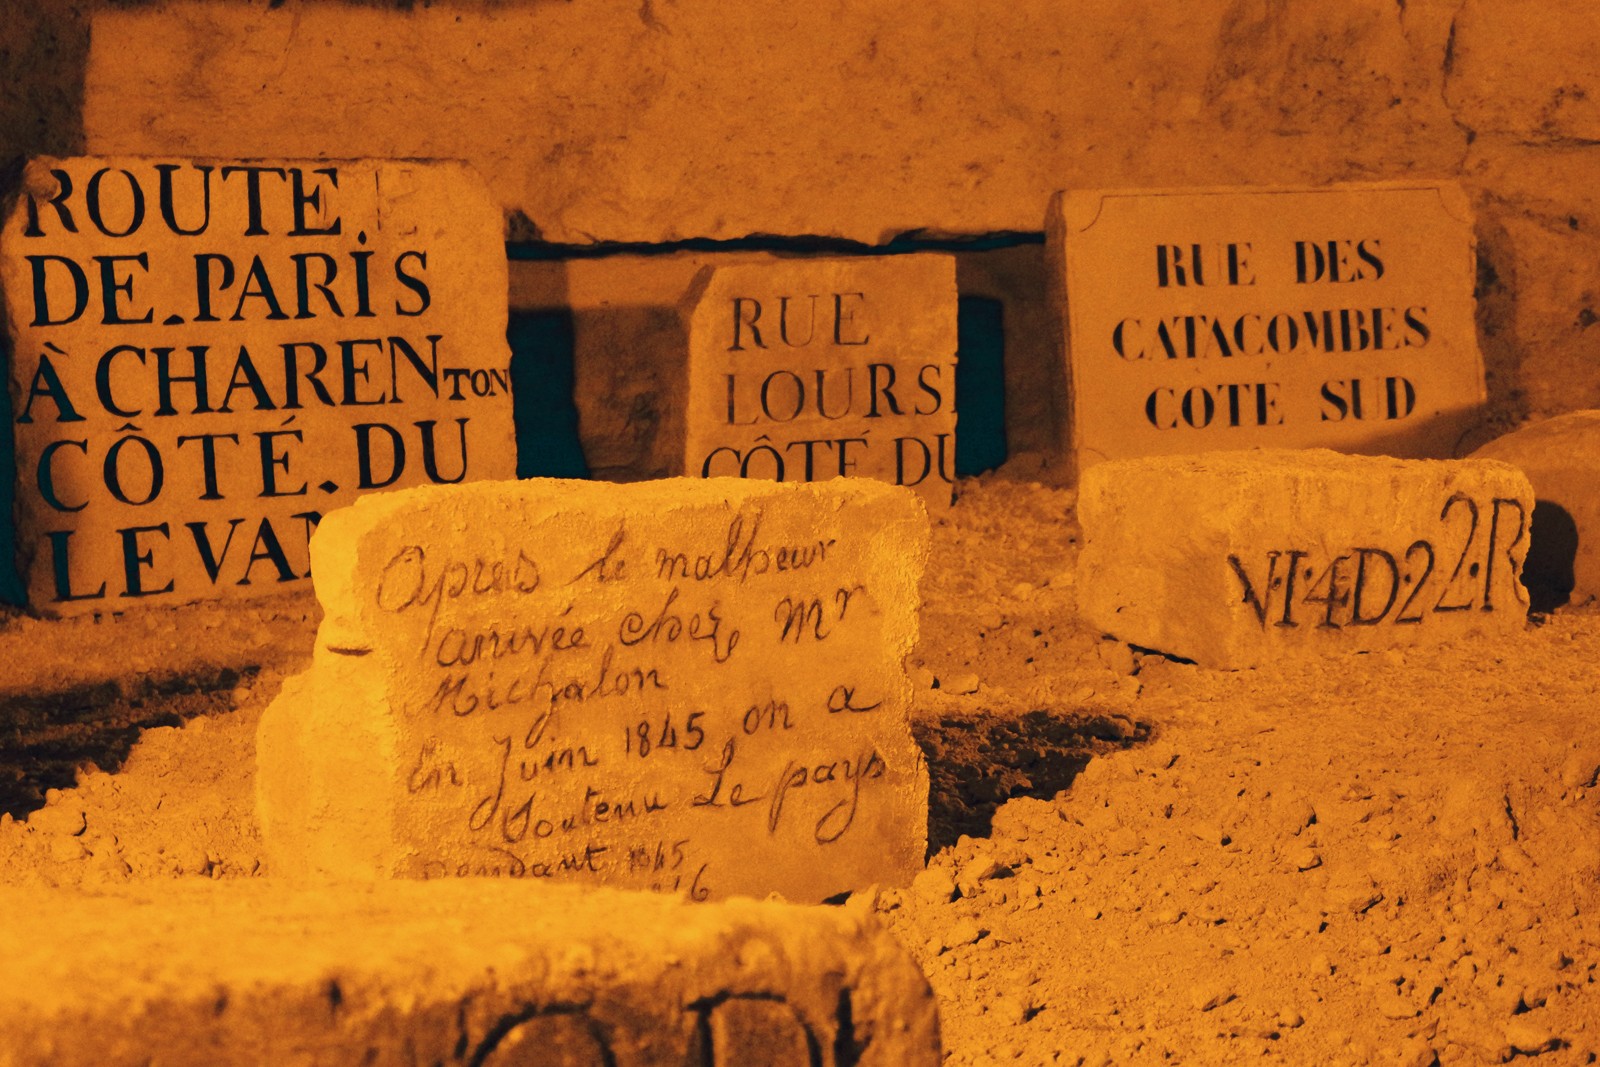 ROUTE.
DE.PARIS
À CHARENTON
CÔTÉ.DU
LEVAN
RUE
LOURSI
CÔTÉ DU
RUE DES
CATACOMBES
COTÉ SUD
Apres le malheur
arrivée chez Mr
Michalon
En Juin 1845 on a
Soutenu Le pays
Pendant 1845
N·I·4D2 2·R